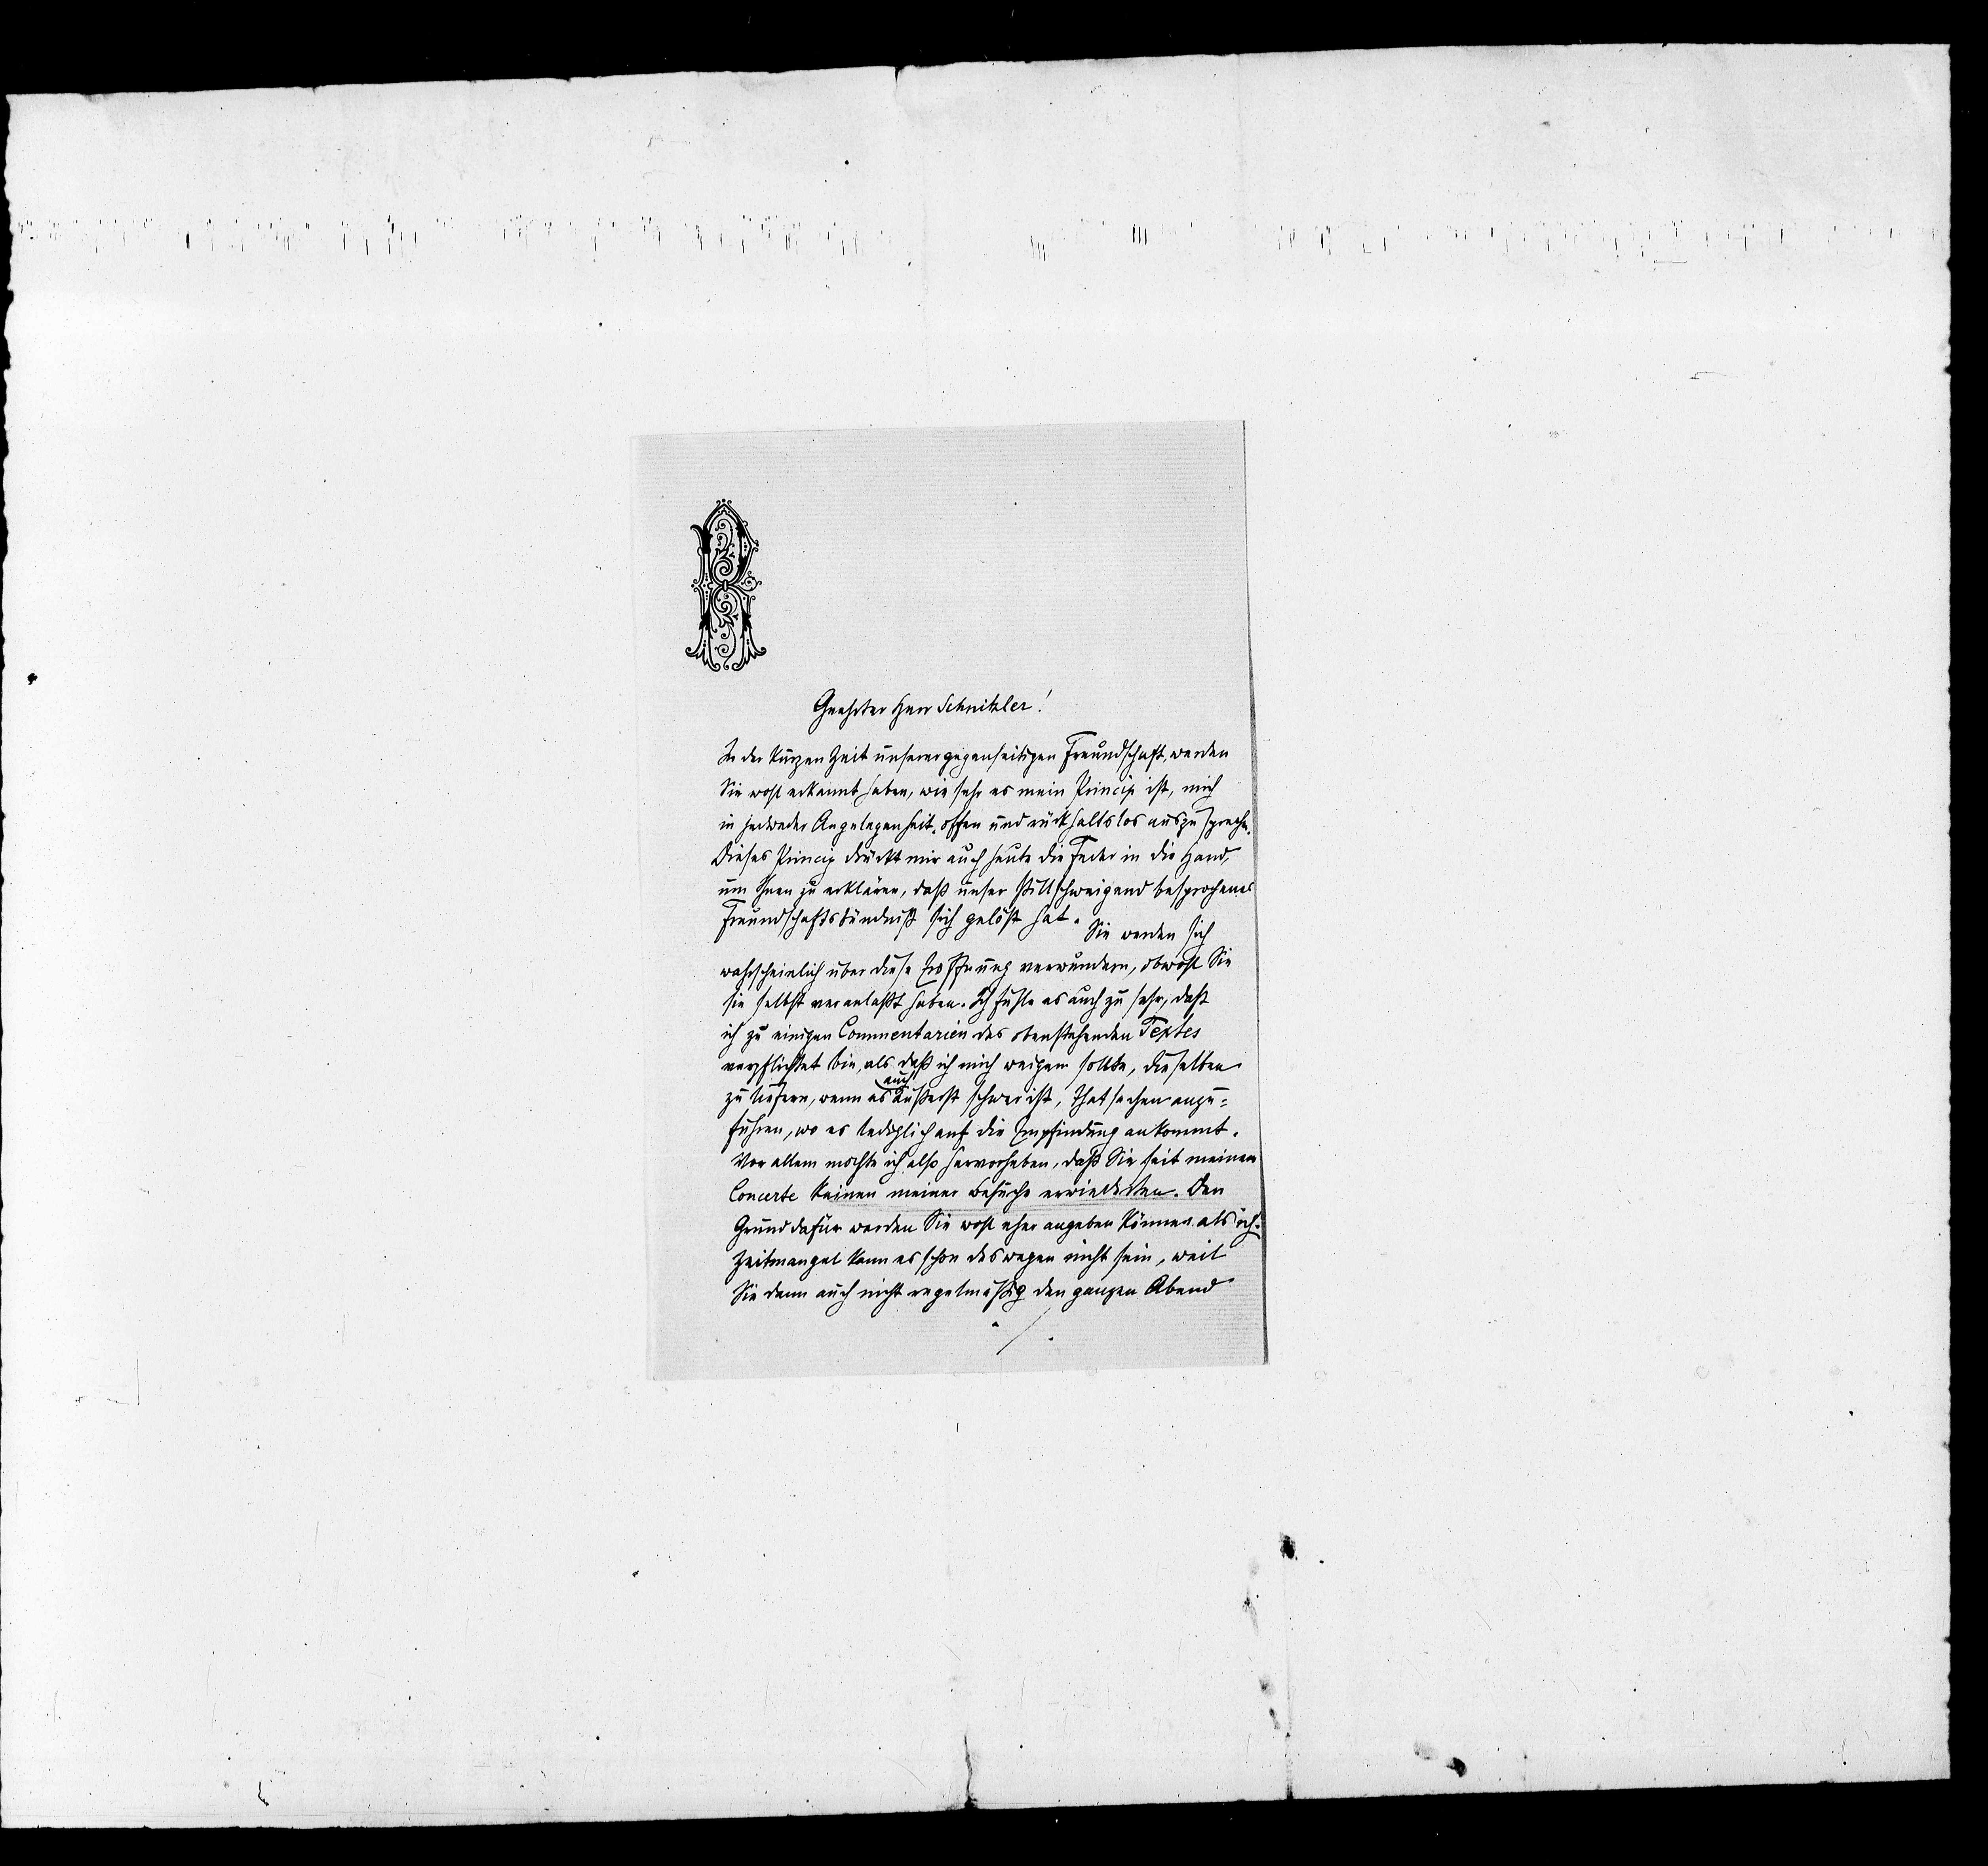 R
Geehrter Herr Schnitzler!
In der kurzen Zeit unserer gegenseitigen Freundschaft, werden
Sie wohl erkannt haben, wie sehr es mein Princip ist, mich
in jedweder Angelegenheit offen und rückhaltslos auszusprechen.
Dieses Princip drückt mir auch heute die Feder in die Hand,
um Ihnen zu erklären, daß unser stillschweigend besprochenes
Freundschaftsbündniß sich gelöst hat. Sie werden sich
wahrscheinlich über diese Eröffnung verwundern, obwohl Sie
sie selbst veranlaßt haben. Ich fühle es auch zu sehr, daß
ich zu einigen Commentarien des obenstehenden Textes
verpflichtet bin, als daß ich mich weigern sollte, dieselben
zu liefern, wenn es auch äußerst schwer ist, Thatsachen anzu=
führen, wo es lediglich auf die Empfindung ankommt.
Vor allem möchte ich also hervorheben, daß Sie seit meinem
Concerte keinen meiner Besuche erwiederten. Den
Grund dafür werden Sie wohl eher angeben können als ich.
Zeitmangel kann es schon deswegen nicht sein, weil
Sie dann auch nicht regelmäßig den ganzen Abend